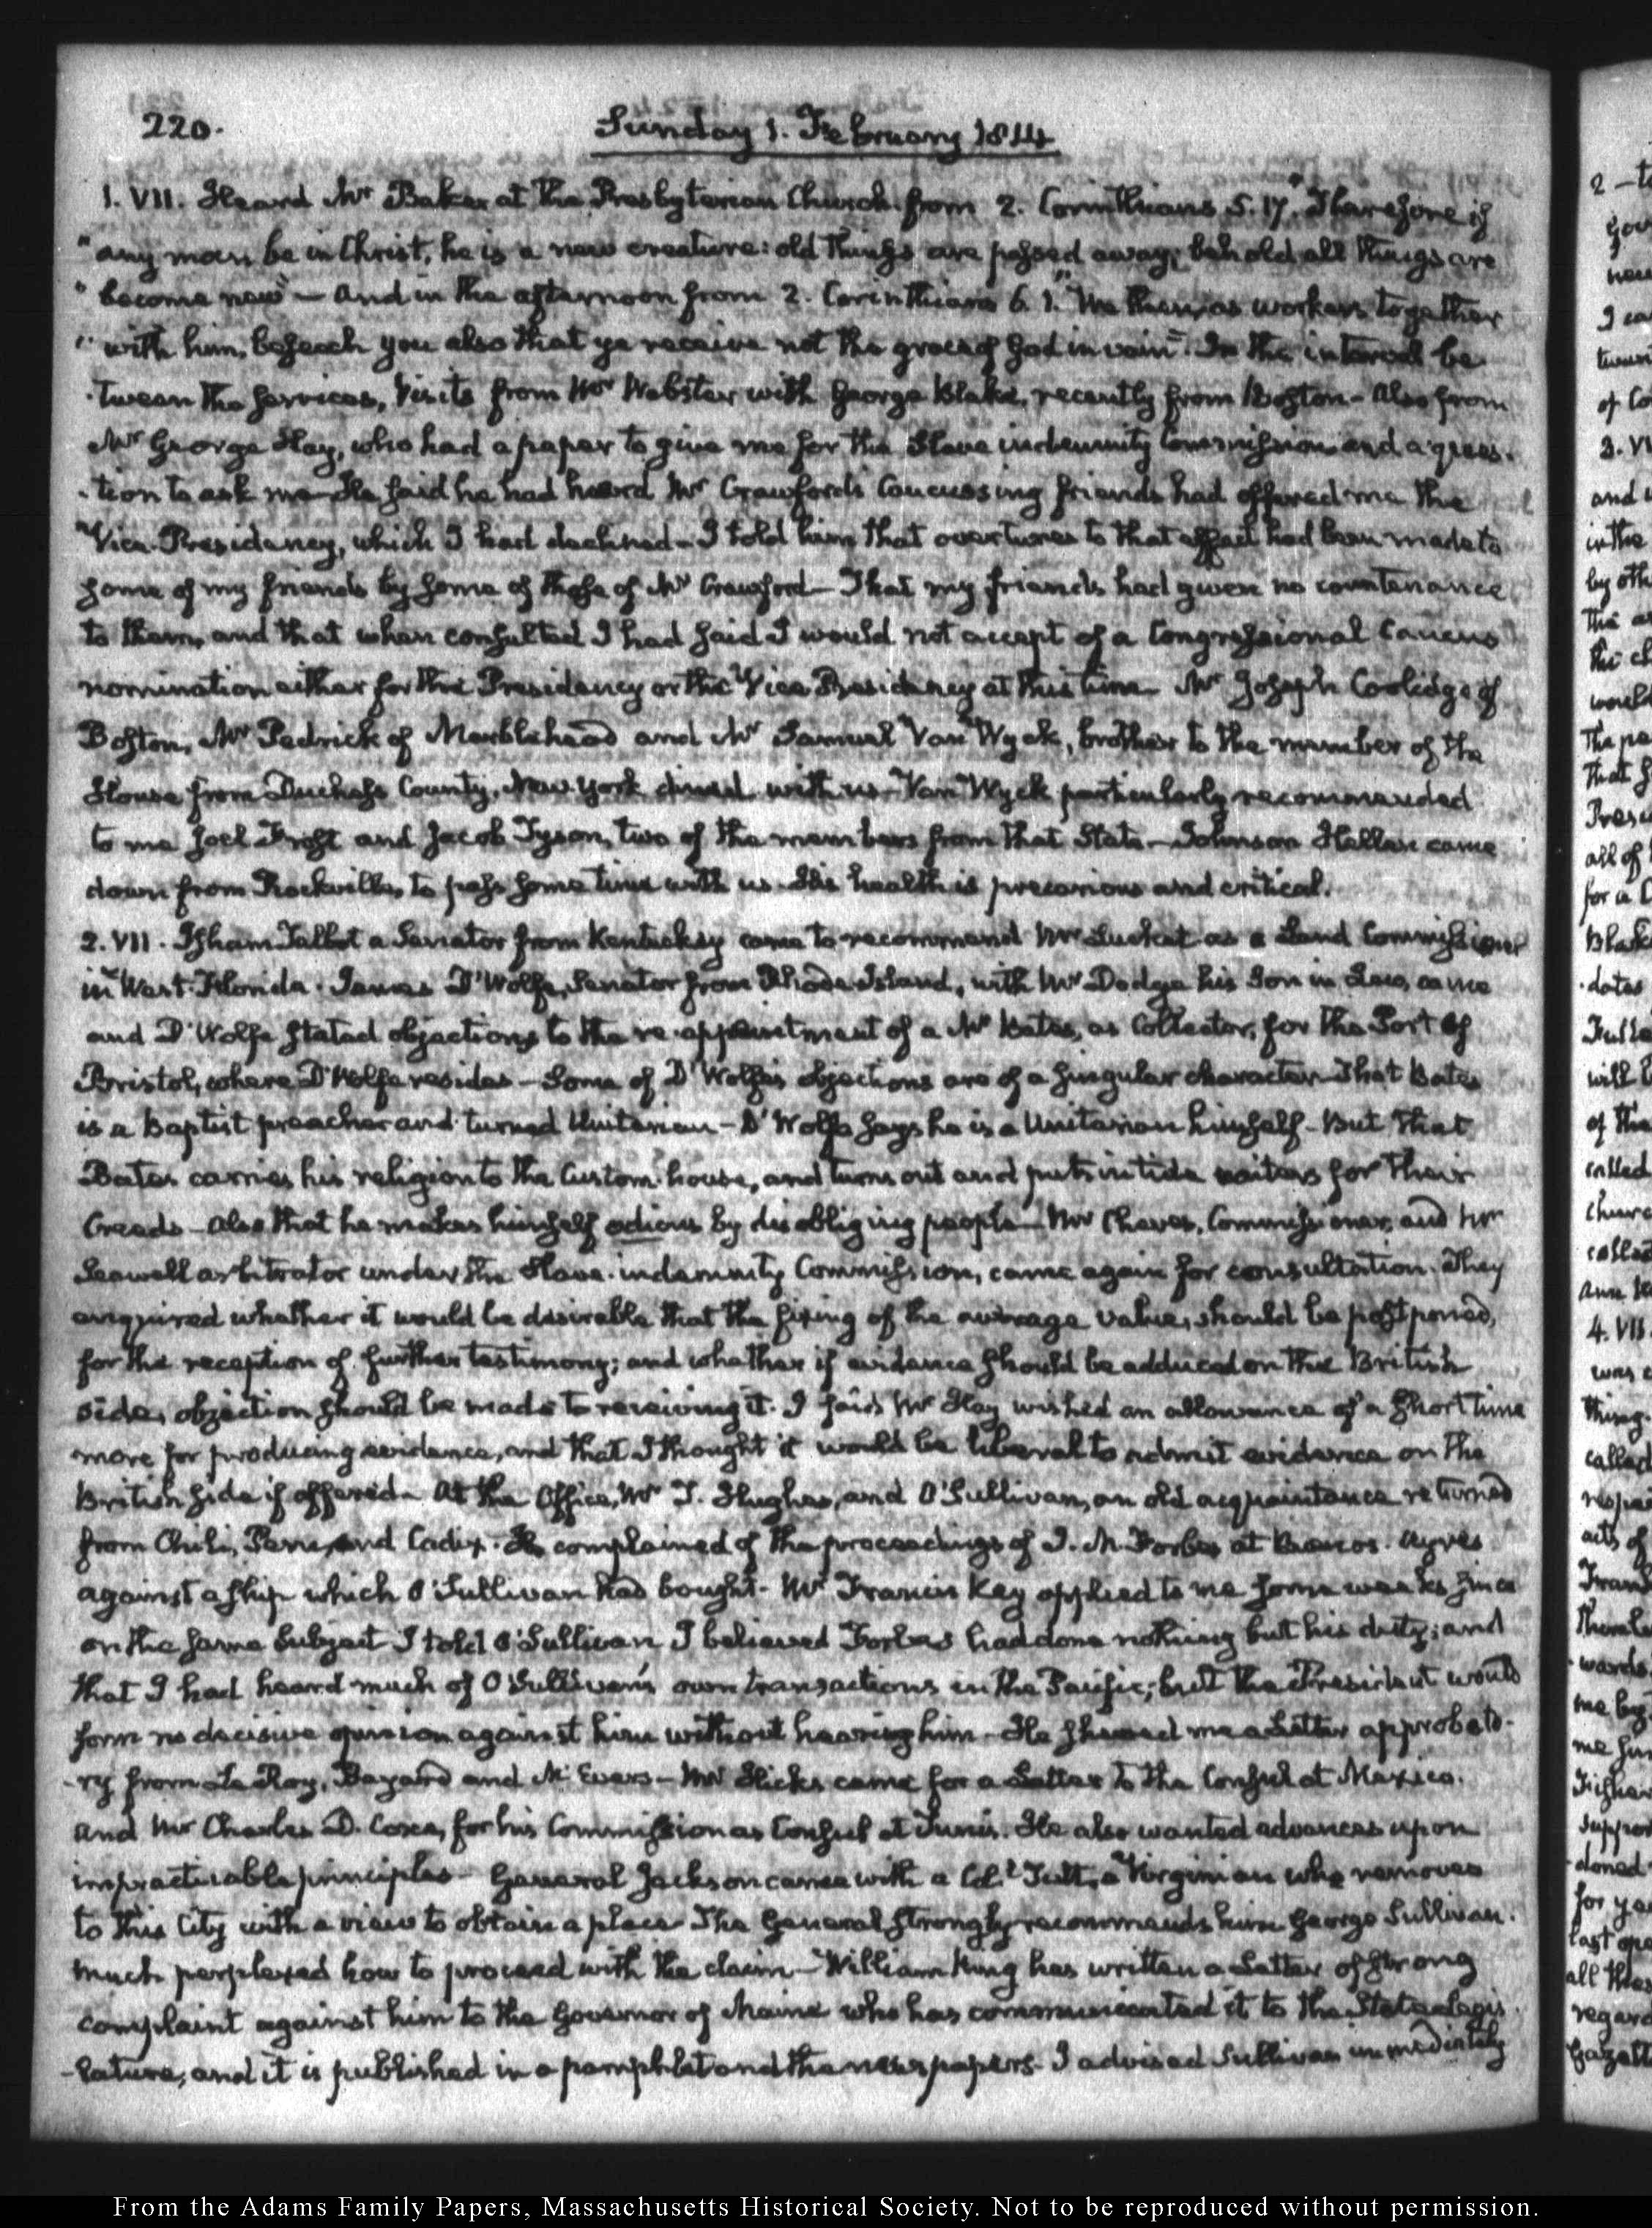 220.
Sunday 1. February 1824
1. VII. Heard Mr Baker at the Presbyterian Church from 2. Corinthians 5. 17. "Therefore if
"any man be in Christ, he is a new creature: old things are passed away; behold all things are
"become new" — And in the afternoon from 2. Corinthians 6. 1. "We then, as workers together
"with him, beseech you also that ye receive not the grace of God in vain". In the interval be-
-tween the services, Visits from Mr Webster with George Blake, recently from Boston — Also from
Mr George Hay, who had a paper to give me for the Slave indemnity Commission and a ques-
-tion to ask me — He said he had heard Mr Crawford's Caucussing friends had offered me the
Vice-Presidency, which I had declined — I told him that overtures to that effect had been made to
some of my friends by some of those of Mr Crawford — That my friends had given no countenance
to them, and that when consulted I had said I would not accept of a Congressional Caucus
nomination either for the Presidency or the Vice Presidency at this time — Mr Joseph Coolidge of
Boston, Mr Pedrick of Marblehead and Mr Samuel Van Wyck, brother to the member of the
House from Duchess County, New York dined with us — Van Wyck particularly recommended
to me Joel Frost and Jacob Tyson, two of the members from that State — Johnson Hellen came
down from Rockville, to pass some time with us. His health is precarious and critical.
2. VII. Isham Talbot a Senator from Kentucky came to recommend Mr Lucket as a Land Commissioner
in West-Florida. James D'Wolfe, Senator from Rhode-Island, with Mr Dodge his Son in Law, came
and D'Wolfe stated objections to the re-appointment of a Mr Bates, as Collector, for the Port of
Bristol, where D'Wolfe resides — Some of D'Wolfe's objections are of a singular character — That Bates
is a Baptist preacher and turned Unitarian — D'Wolfe says he is a Unitarian himself — But that
Bates carries his religion to the Custom-house, and turns out and puts in tide waiters for their
Creeds — Also that he makes himself odious by disobliging people — Mr Cheves, Commissioner, and Mr
Seawell arbitrator under the Slave-indemnity Commission, came again for consultation. They
enquired whether it would be desirable that the fixing of the average value, should be postponed,
for the reception of further testimony; and whether if evidence should be adduced on the British
side, objection should be made to receiving it. I said Mr Hay wished an allowance of a short time
more for producing evidence, and that I thought it would be liberal to admit evidence on the
British side if offered — At the Office, Mr J. Hughes, and O'Sullivan, an old acquaintance returned
from Chili, Peru, and Cadiz. He complained of the proceedings of J. M. Forbes at Buenos-Ayres
against a ship which O'Sullivan had bought — Mr Francis Key applied to me some weeks since
on the same subject I told O'Sullivan I believed Forbes had done nothing but his duty; and
that I had heard much of O'Sullivan's own transactions in the Pacific; but the President would
form no decisive opinion against him without hearing him — He shewed me a Letter approbato-
-ry from Le Roy, Bayard and McEvers — Mr Hicks came for a Letter to the Consul at Mexico.
and Mr Charles D. Coxe, for his Commission as Consul at Tunis. He also wanted advances upon
impracticable principles — General Jackson came with a Coll. Tutt, a Virginian who removes
to this City with a view to obtain a place. The General strongly recommends him George Sullivan.
much perplexed how to proceed with the claim — William King has written a Letter of strong
complaint against him to the Governor of Maine who has communicated it to the State Legis-
-lature, and it is published in a pamphlet and the newspapers — I advised Sullivan immediately
From the Adams Family Papers, Massachusetts Historical Society. Not to be reproduced without permission.